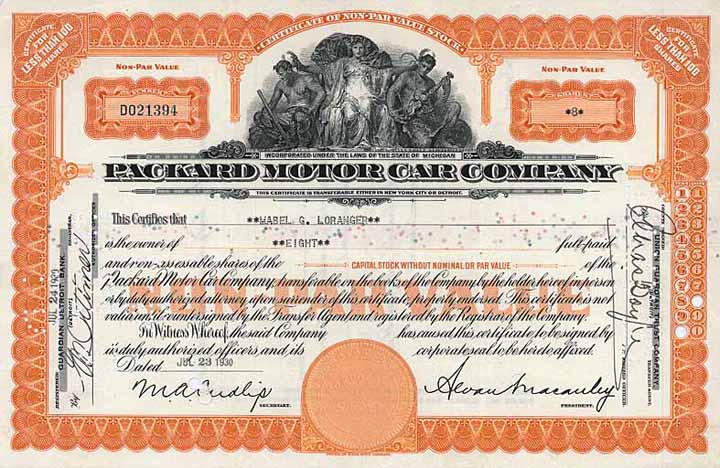 CERTIFICATE OF NON-PAR VALUE STOCK
CERTIFICATE FOR LESS THAN 100 SHARES
CERTIFICATE FOR LESS THAN 100 SHARES
NON-PAR VALUE
NON-PAR VALUE
NUMBER
DO21394
SHARES
*8*
INCORPORATED UNDER THE LAWS OF THE STATE OF MICHIGAN
PACKARD MOTOR CAR COMPANY
THIS CERTIFICATE IS TRANSFERABLE EITHER IN NEW YORK CITY OR DETROIT.
This Certifies that **MABEL G. LORANGER**
is the owner of **EIGHT** full-paid
and non-assessable shares of the CAPITAL STOCK WITHOUT NOMINAL OR PAR VALUE of the
Packard Motor Car Company, transferable on the books of the Company by the holder hereof in person
or by duly authorized attorney upon surrender of this certificate properly endorsed. This certificate is not
valid until countersigned by the Transfer Agent and registered by the Registrar of the Company.
In Witness Whereof, the said Company has caused this certificate to be signed by
its duly authorized officers, and its corporate seal to be hereto affixed.
Dated JUL 23 1930
Alvan Macauley
SECRETARY.
PRESIDENT.
REGISTERED JUL 24 1930
GUARDIAN DETROIT BANK
By